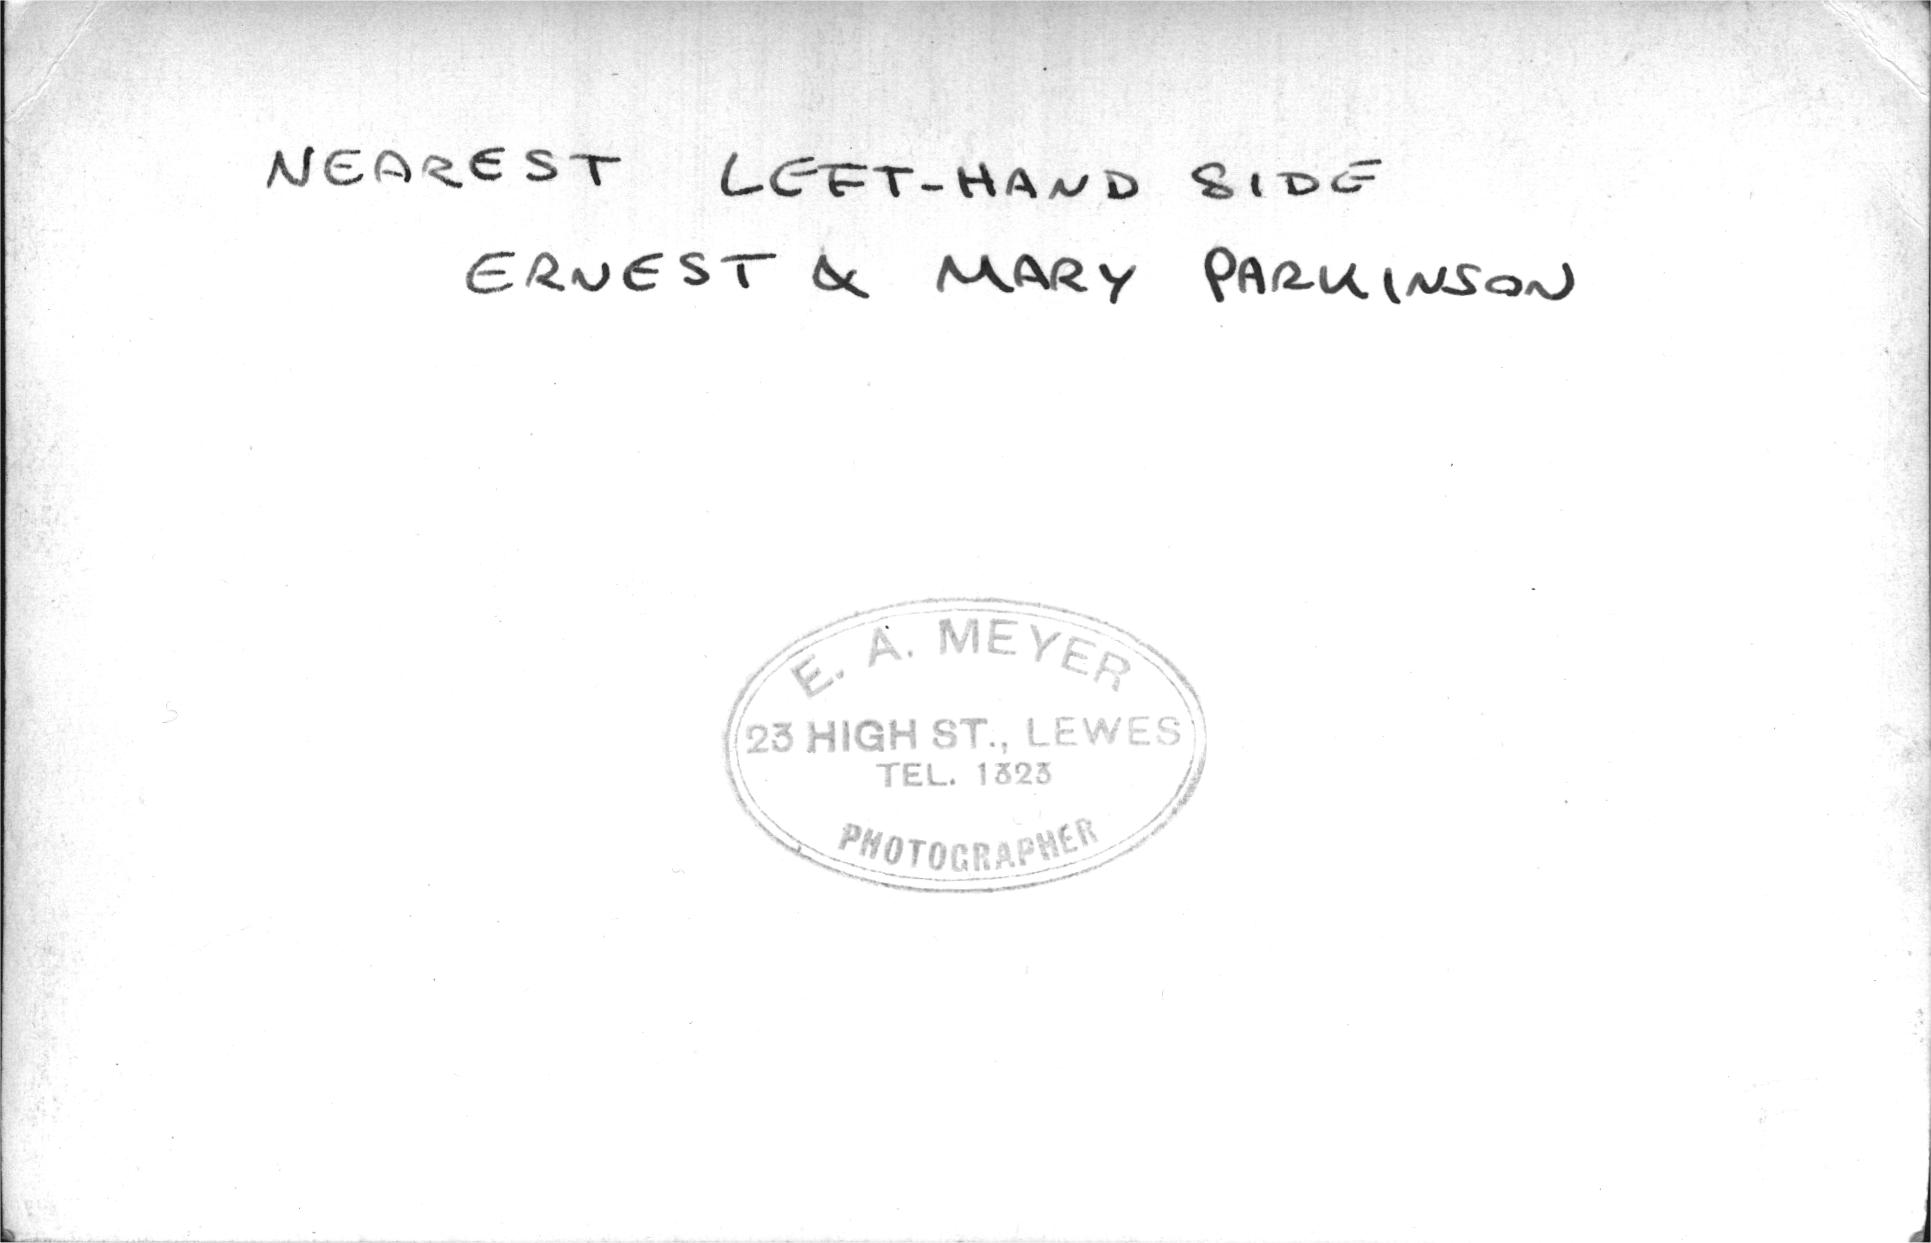 NEAREST LEFT-HAND SIDE
ERNEST & MARY PARKINSON
E. A. MEYER
23 HIGH ST., LEWES
TEL. 1323
PHOTOGRAPHER